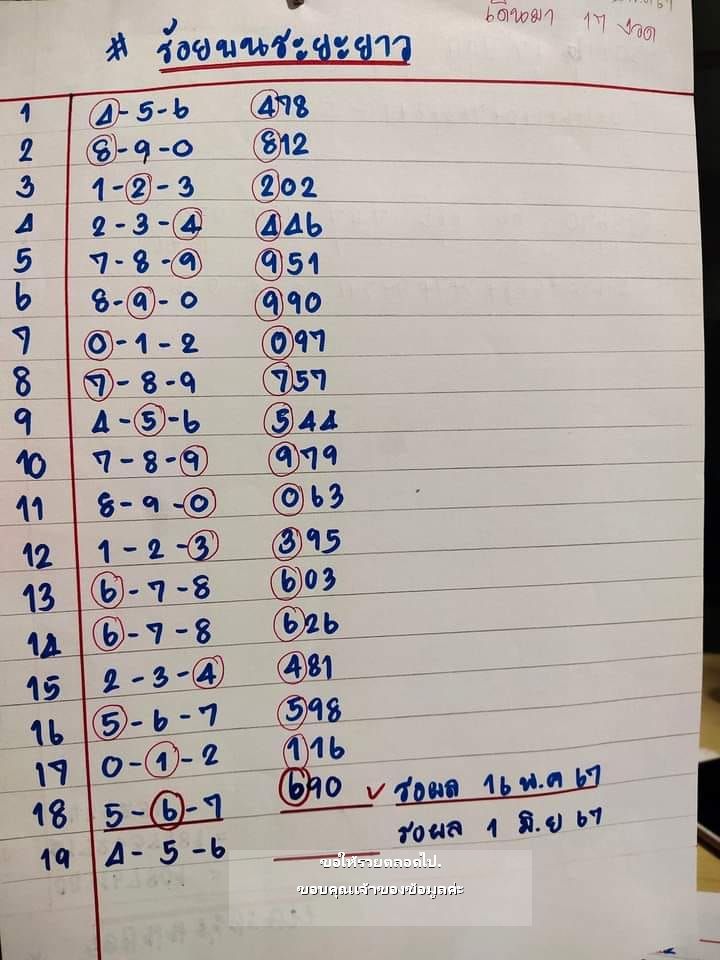 เดินมา 17 งวด
# ร้อยบนระยะยาว
1 4-5-6 478
2 8-9-0 812
3 1-2-3 202
4 2-3-4 446
5 7-8-9 951
6 8-9-0 990
7 0-1-2 097
8 7-8-9 757
9 4-5-6 544
10 7-8-9 979
11 8-9-0 063
12 1-2-3 395
13 6-7-8 603
14 6-7-8 626
15 2-3-4 481
16 5-6-7 598
17 0-1-2 116
18 5-6-7 690 ✓ รอผล 16 พ.ค 67
19 4-5-6 รอผล 1 มิ.ย 67
ขอให้รวยตลอดไป.
ขอบคุณเจ้าของข้อมูลค่ะ